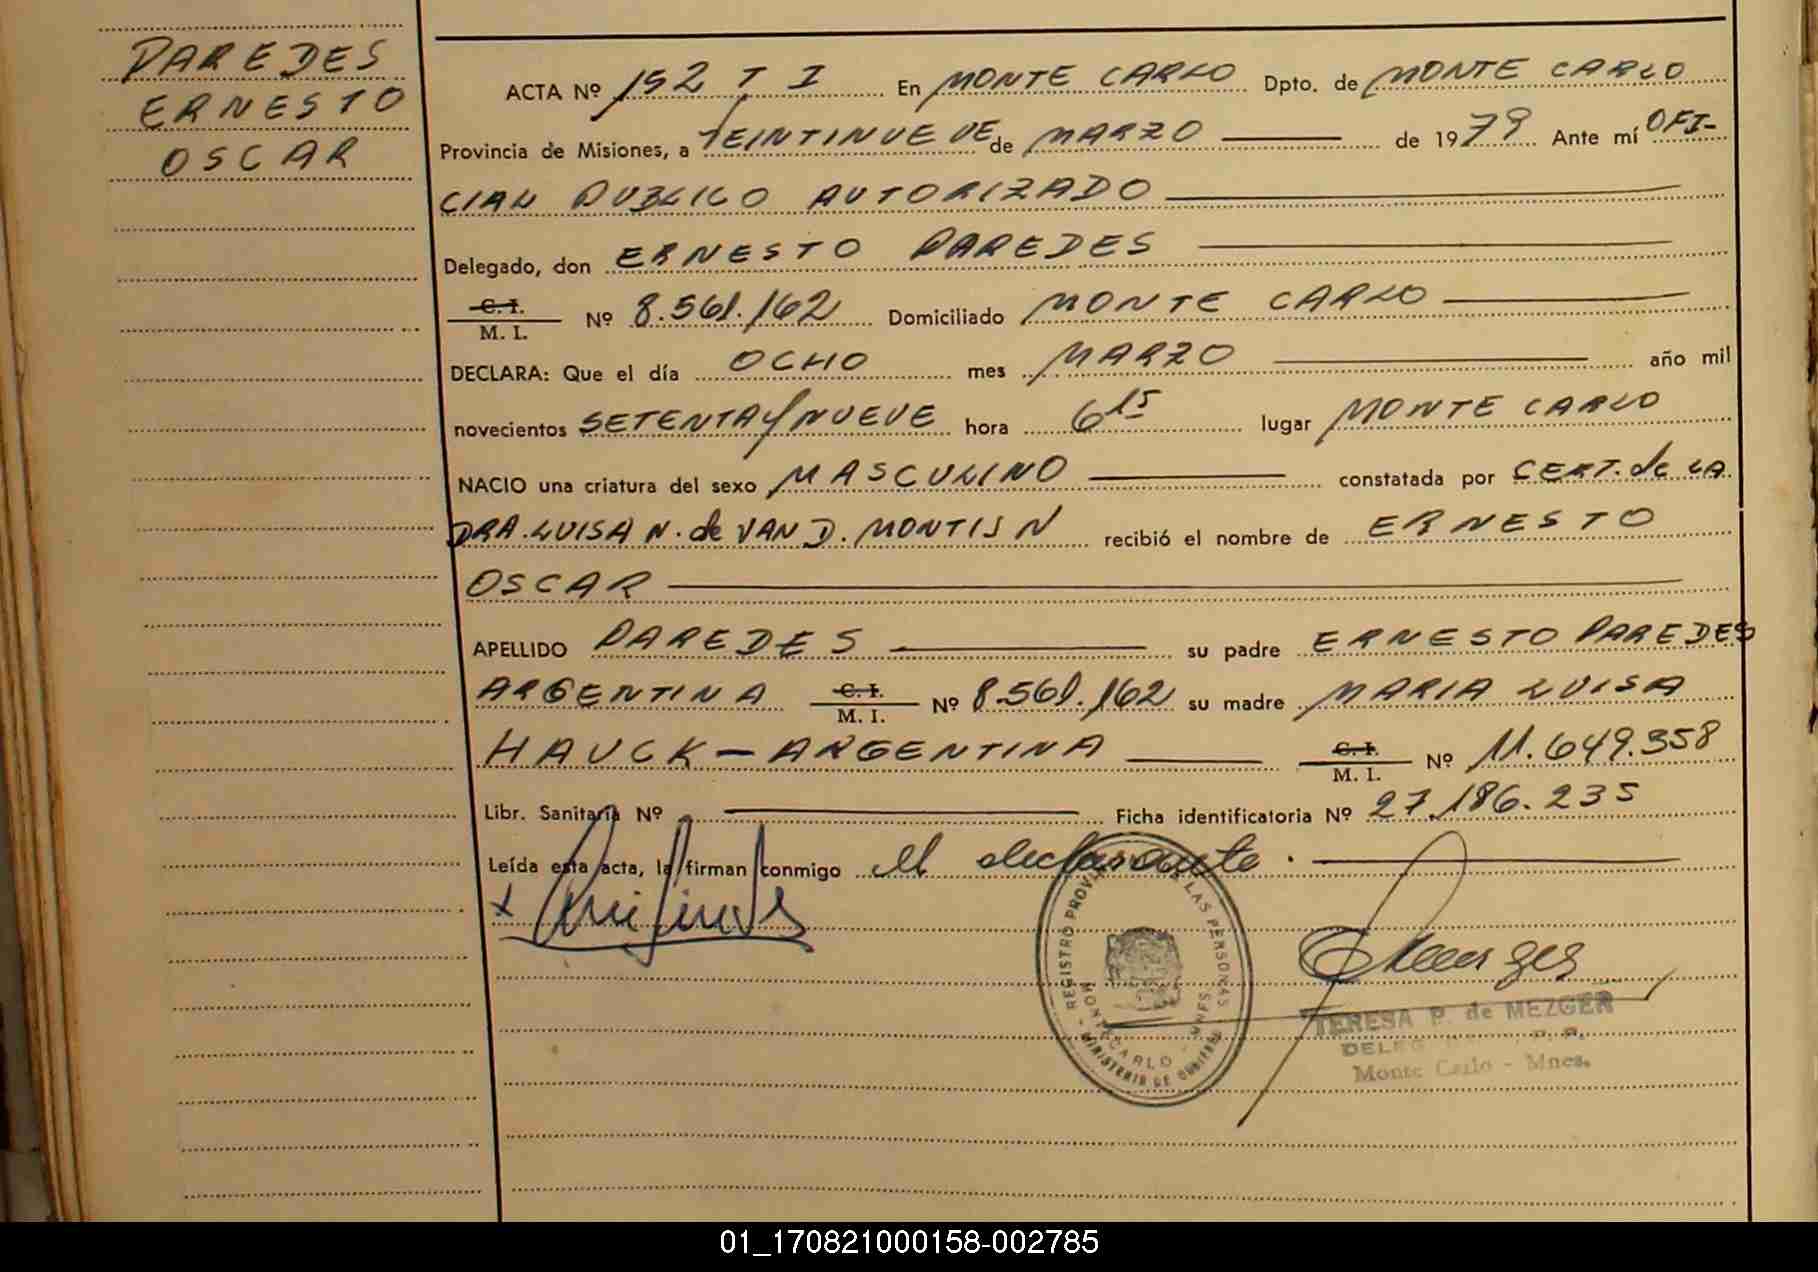 PAREDES
ERNESTO
OSCAR
ACTA Nº 152 T I En MONTE CARLO Dpto. de MONTE CARLO
Provincia de Misiones, a VEINTINUEVE de MARZO de 1979 Ante mí OFI-
CIAL PUBLICO AUTORIZADO
Delegado, don ERNESTO PAREDES
C. I.
M. I. Nº 8.561.162 Domiciliado MONTE CARLO
DECLARA: Que el día OCHO mes MARZO año mil
novecientos SETENTA Y NUEVE hora 6 15 lugar MONTE CARLO
NACIO una criatura del sexo MASCULINO constatada por CERT. de LA
DRA. LUISA N. de VAN D. MONTIJN recibió el nombre de ERNESTO
OSCAR
APELLIDO PAREDES su padre ERNESTO PAREDES
ARGENTINA C. I. M. I. Nº 8.561.162 su madre MARIA LUISA
HAUCK - ARGENTINA C. I. M. I. Nº 11.649.358
Libr. Sanitaria Nº Ficha identificatoria Nº 27.186.235
Leída esta acta, la firman conmigo el declarante.
REGISTRO PROVINCIAL DE LAS PERSONAS
MONTECARLO - MNES
- MINISTERIO DE GOBIERNO
TERESA P. de MEZGER
Monte Carlo - Mnes.
01_170821000158-002785